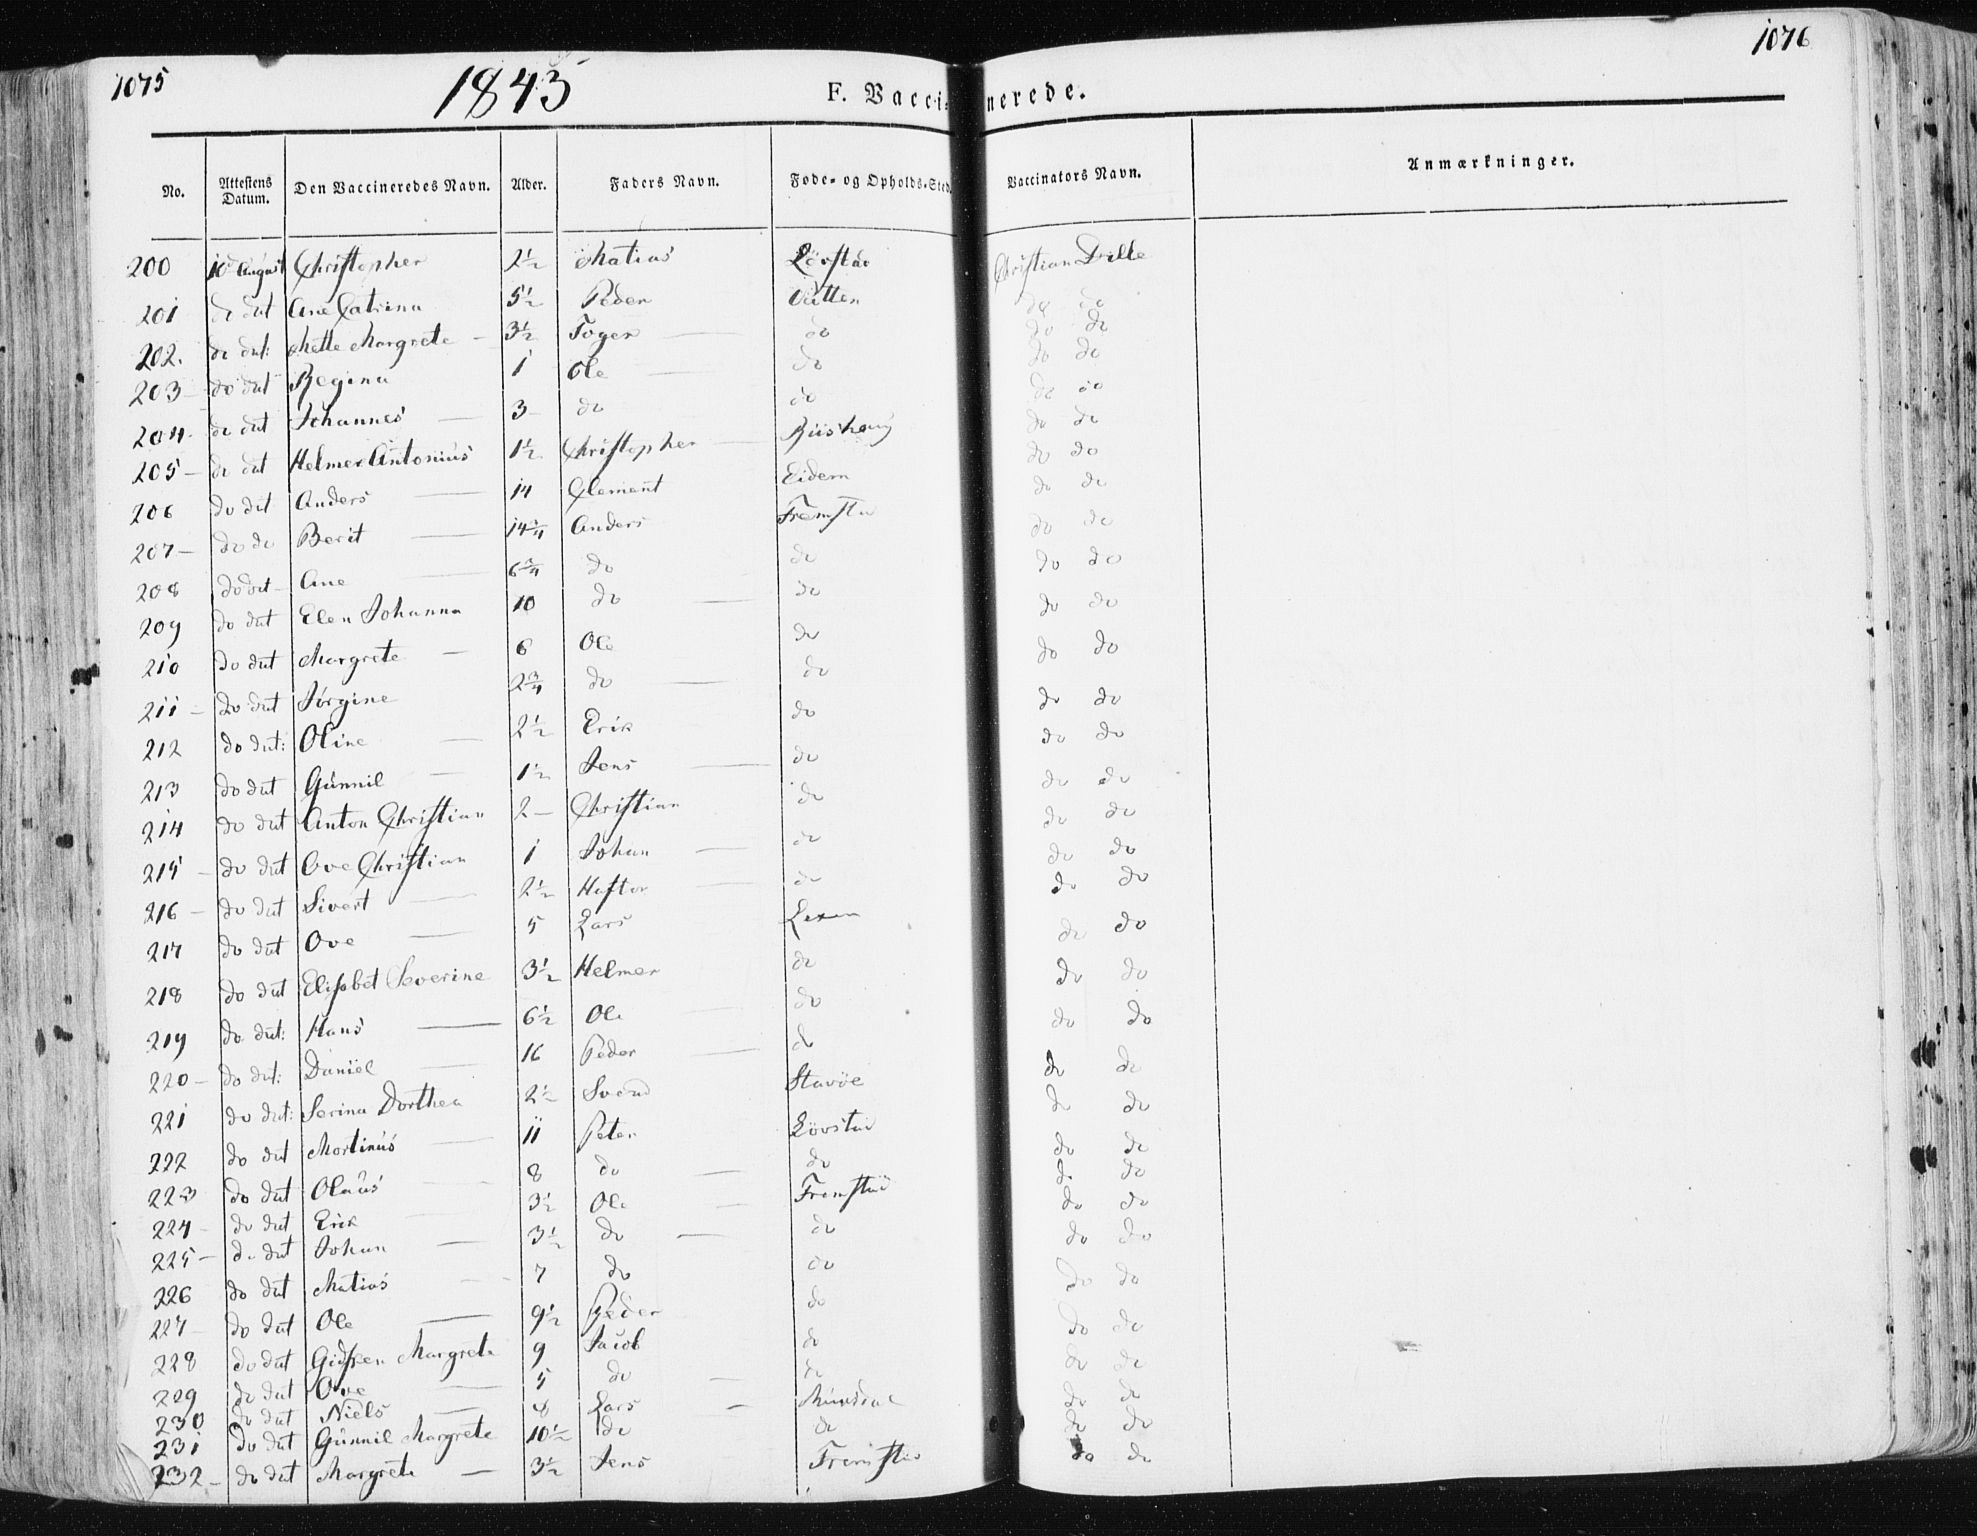 1075
1843
F. Vaccinerede.
1076
No. Attestens Datum. Den Vaccineredes Navn. Alder. Faders Navn. Føde- og Opholds-Sted. Vaccinators Navn. Anmærkninger.
200 10 August Christopher 2 1/2 Matias Lövstad Christian Dille
201 do dat Ane Catrina 5 1/2 Peder Vutten do do
202. do dat: Mette Margrete - 3 1/2 Toger do do do
203 - do dat Regina 1 Ole do do do
204. do dat Johannes 3 - do do do do
205 - do dat Helmer Antonius 1 1/2 Christopher Riishaug do do
206 do dat Anders 14 Clement Eidem do do
207 - do do Berit 14 3/4 Anders Fremstad do do
208 do dat - Ane 6 3/4 do do do do
209 do dat Elen Johanna 10 do do do do
210 do dat Margrete 6 Ole do do do
211 - do dat Jörgine 2 3/4 do do do do
212 do dat: Oline 2 1/2 Erik do do do
213 do dat Gunnil 1 1/2 Jens do do do
214 do dat Anton Christian 2 - Christian do do do
215 - do dat Ove Christian 1 Johan do do do
216 - do dat Sivert 2 1/2 Haftor do do do
217 do dat Ove 5 Lars Lexen do do
218 do dat Elisabet Severine 3 1/2 Helmer do do do
219 do dat: Hans 6 1/2 Ole do do do
220 - do dat: Daniel 16 Peder do do do
221 do dat: Serina Dorthea 2 1/2 Svend Stavöe do do
222 do dat Mortinus 11 Peter Lövstad do do
223 do dat Olaus 8 do do do do
224 - do dat Erik 3 1/2 Ole Fremstad do do
225 - do dat Johan 3 1/2 do do do do
226 do dat Matias 7 do do do do
227 - do dat Ole 9 1/2 Peder do do do
228 do dat Gidsken Margrete 9 Jacob do do do
229 do dat Ove 5 do do do do
230 do dat Niels 8 Lars do do
231 do dat Gunnil Margrete 10 1/2 do do do do
232 - do dat Margrete 3 1/2 Jens Fremstad do do